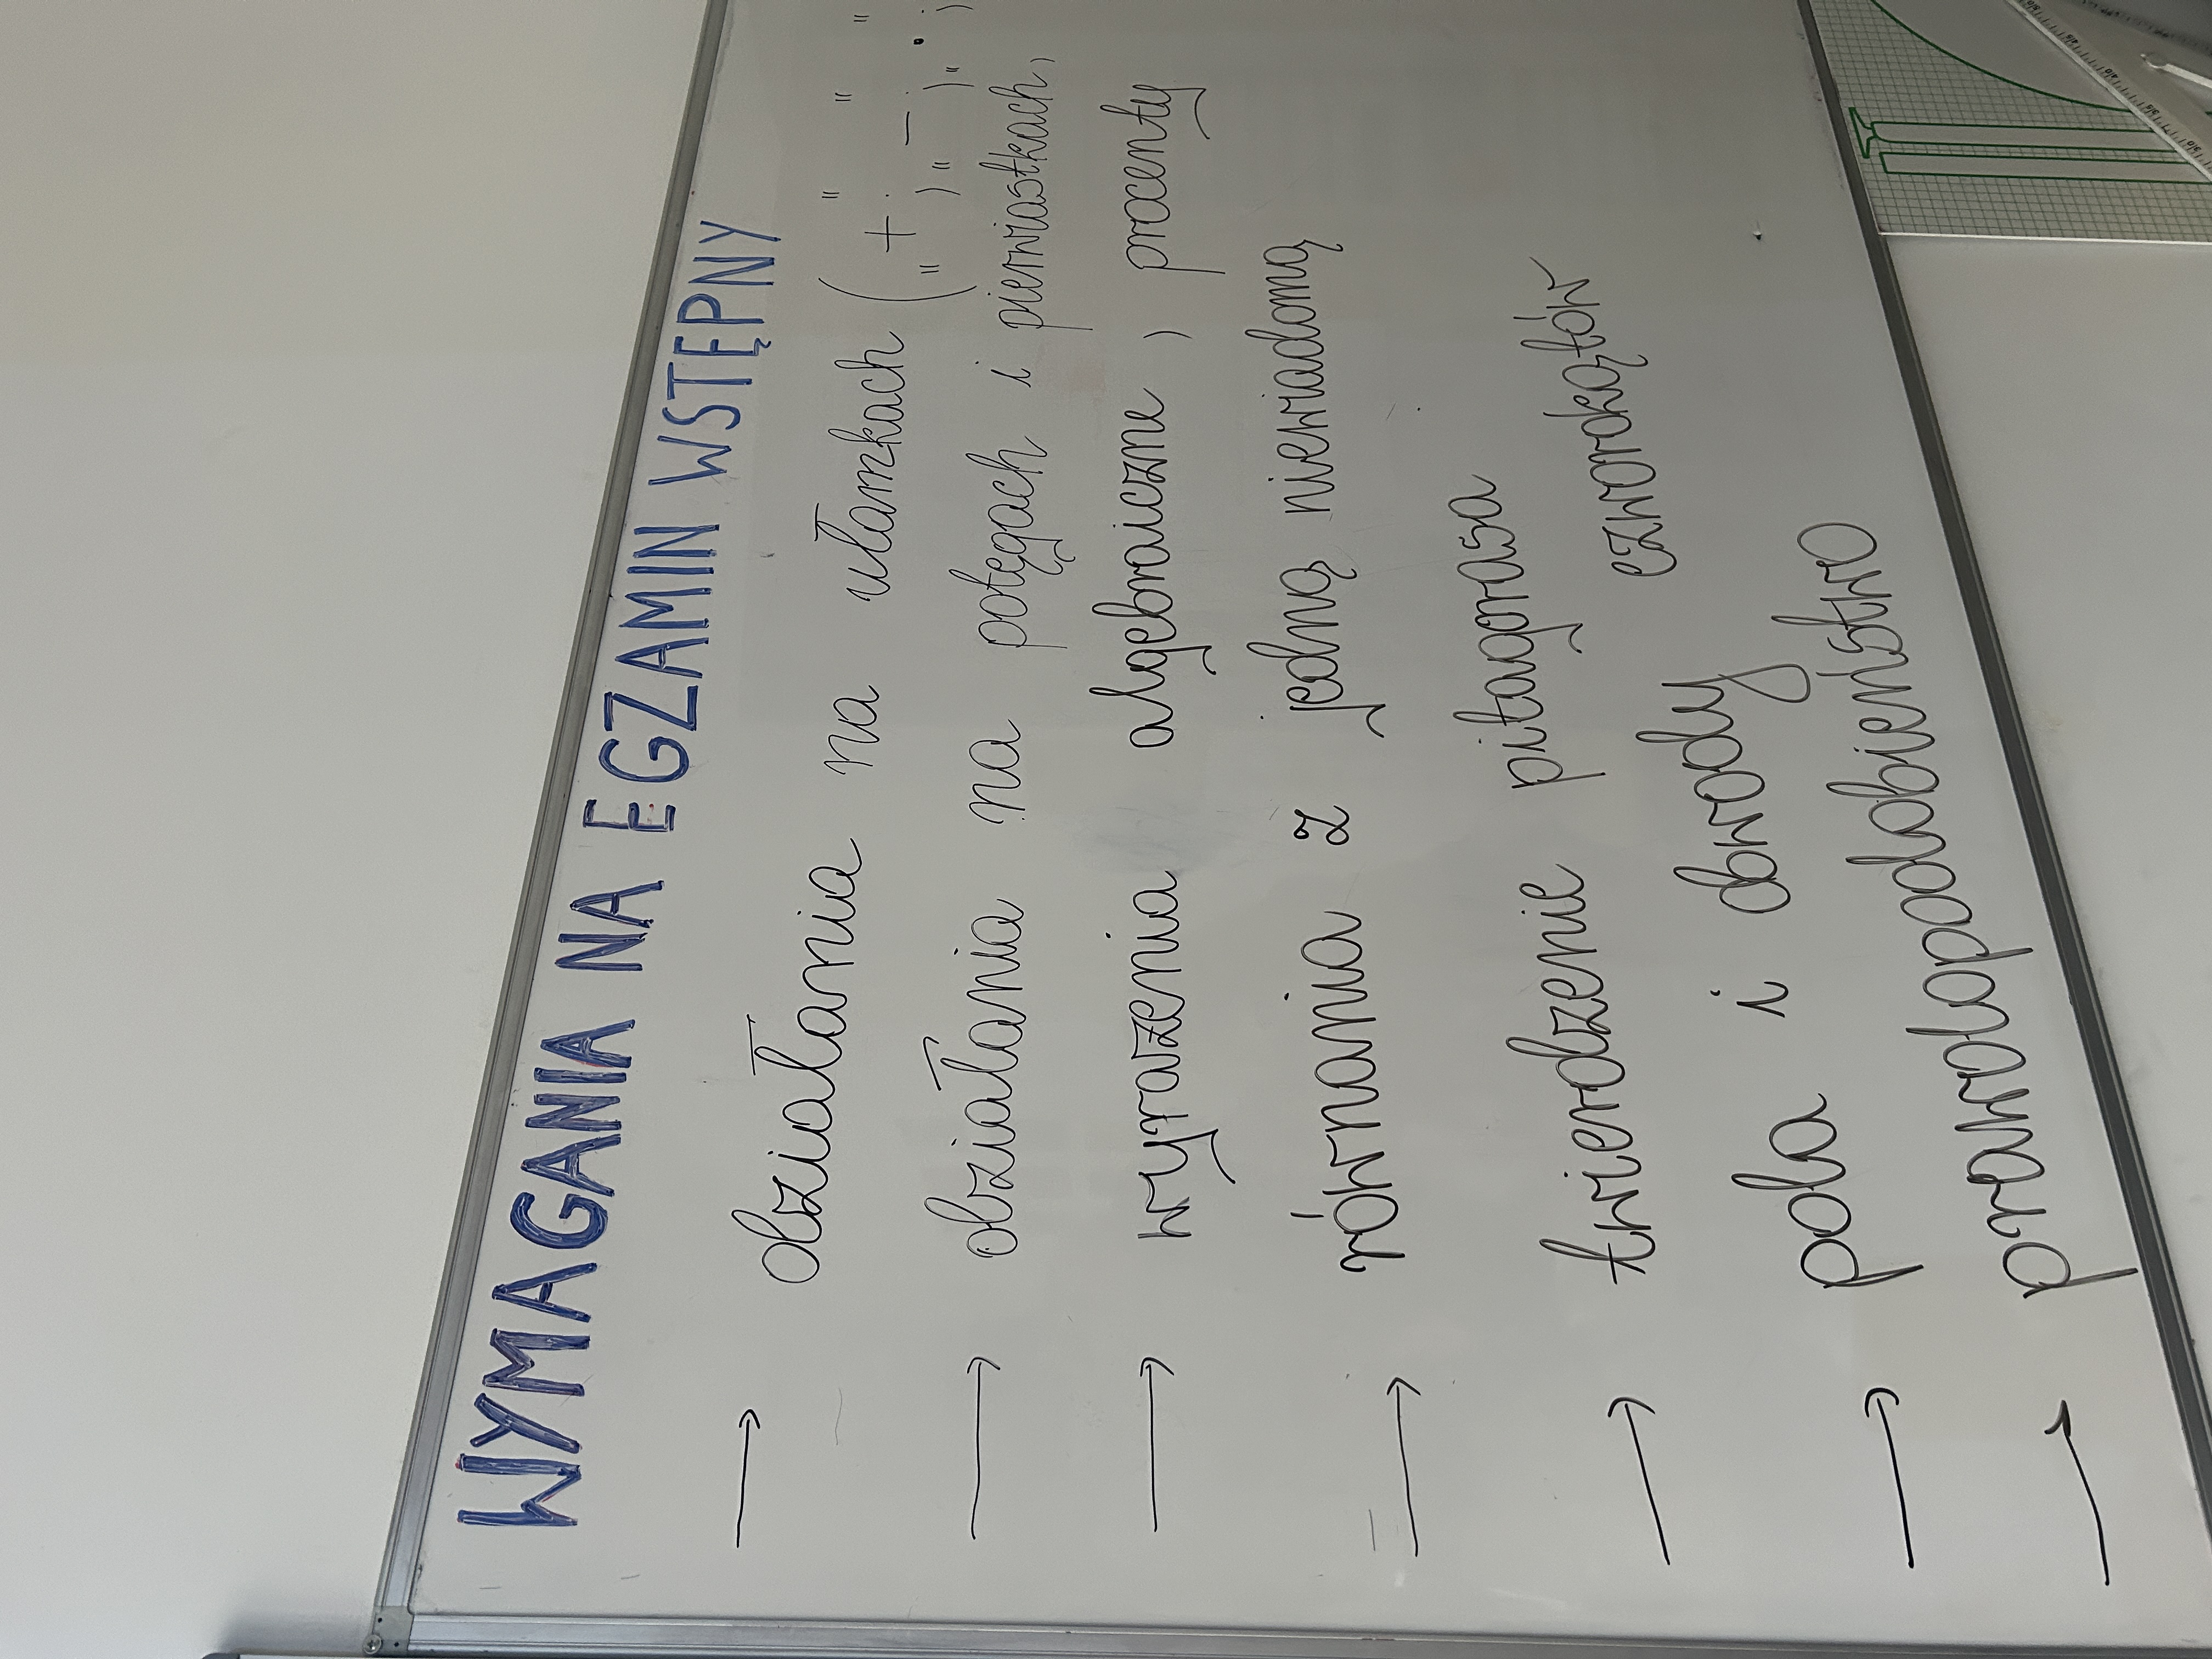 WYMAGANIA NA EGZAMIN WSTĘPNY
→ działania na ułamkach ("+", "-", "·",
→ działania na potęgach i pierwiastkach,
→ wyrażenia algebraiczne, procenty
→ równania z jedną niewiadomą
→ twierdzenie pitagorasa
→ pola i obwody czworokątów
→ prawdopodobieństwo